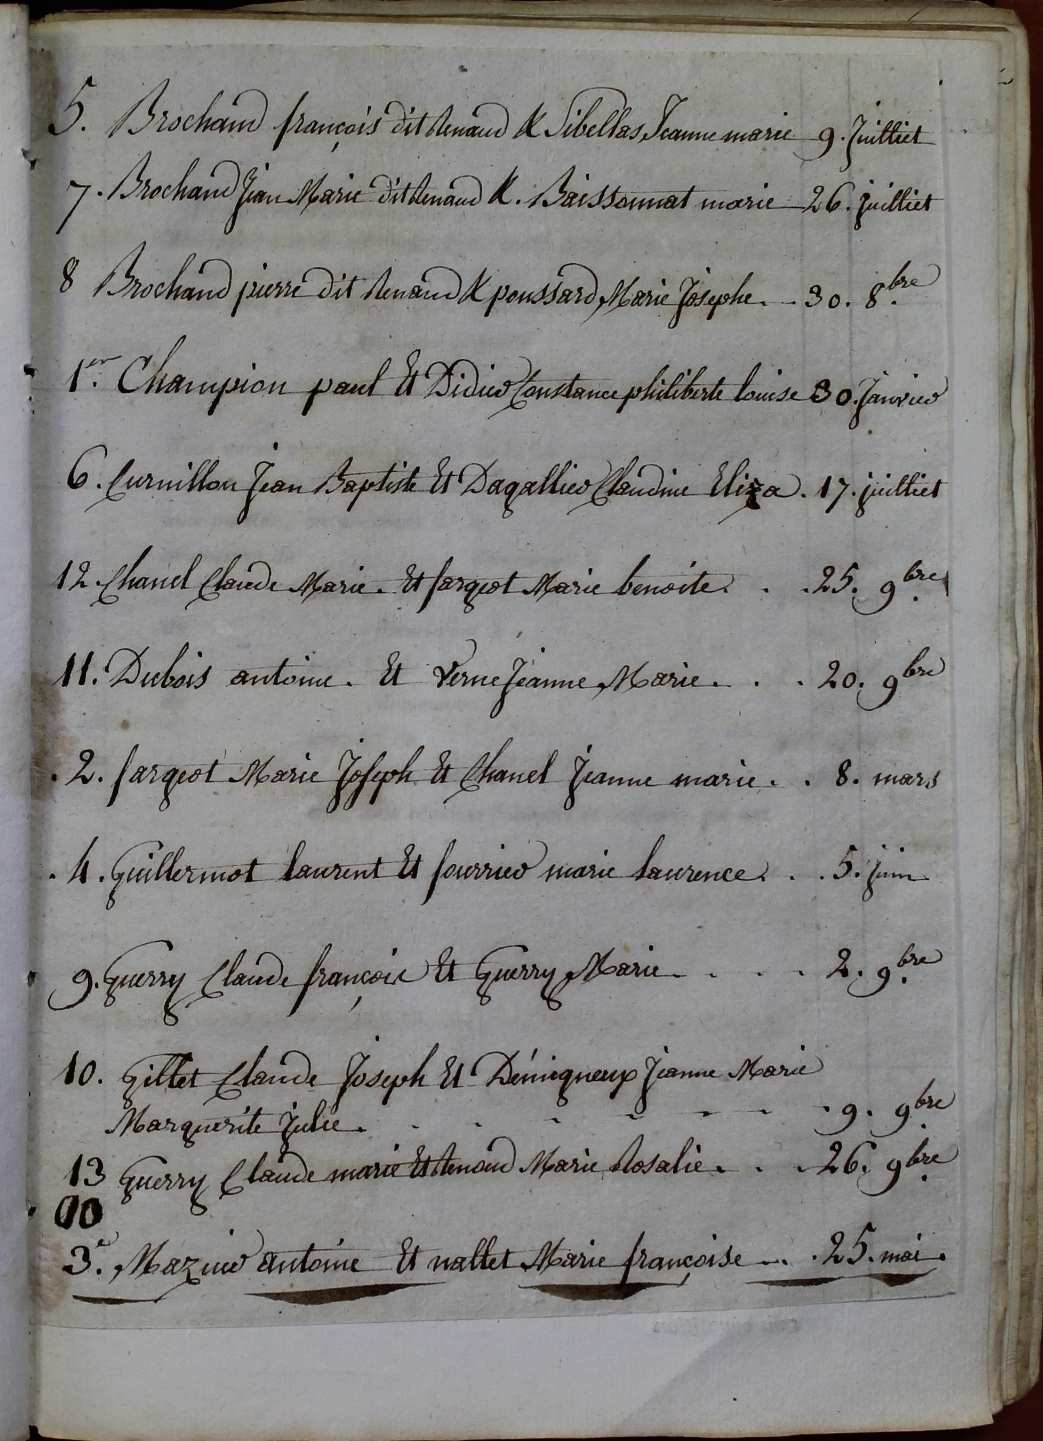 5. Brochand françois dit Renaud & Sibellas Jeanne marie 9. Juilliet
7. Brochand Jean Marie dit Renaud &. Baissonnat marie 26. juilliet
8 Brochand pierre dit Renaud & poussard Marie Josephe. 30. 8.bre
1.er Champion paul Et Didier Constance philiberte louise 30. Janvier
6. Curnillon Jean Baptiste Et Dagallier Claudine Eliza. 17. juilliet
12. Chanel Claude Marie. Et fargeot Marie benoite. . . 25. 9.bre
11. Dubois antoine. Et Verne Jeanne Marie. . . 20. 9bre
. 2. fargeot Marie Joseph Et Chanel Jeanne marie. . 8. mars
. 4. Guillermot laurent Et fourrier marie laurence. . . 5. juin
9. Guerry Claude françois Et Guerry Marie. . . . 2. 9.bre
10. Gillet Claude Joseph Et Déniqueux Jeanne Marie
Marguerite Julie. . . . . . . . 9. 9.bre
13 Guerry Claude marie Et Renaud Marie Rosalie. . . 26. 9.bre
3.e Mazuir antoine Et nallet Marie françoise . . 25. mai.